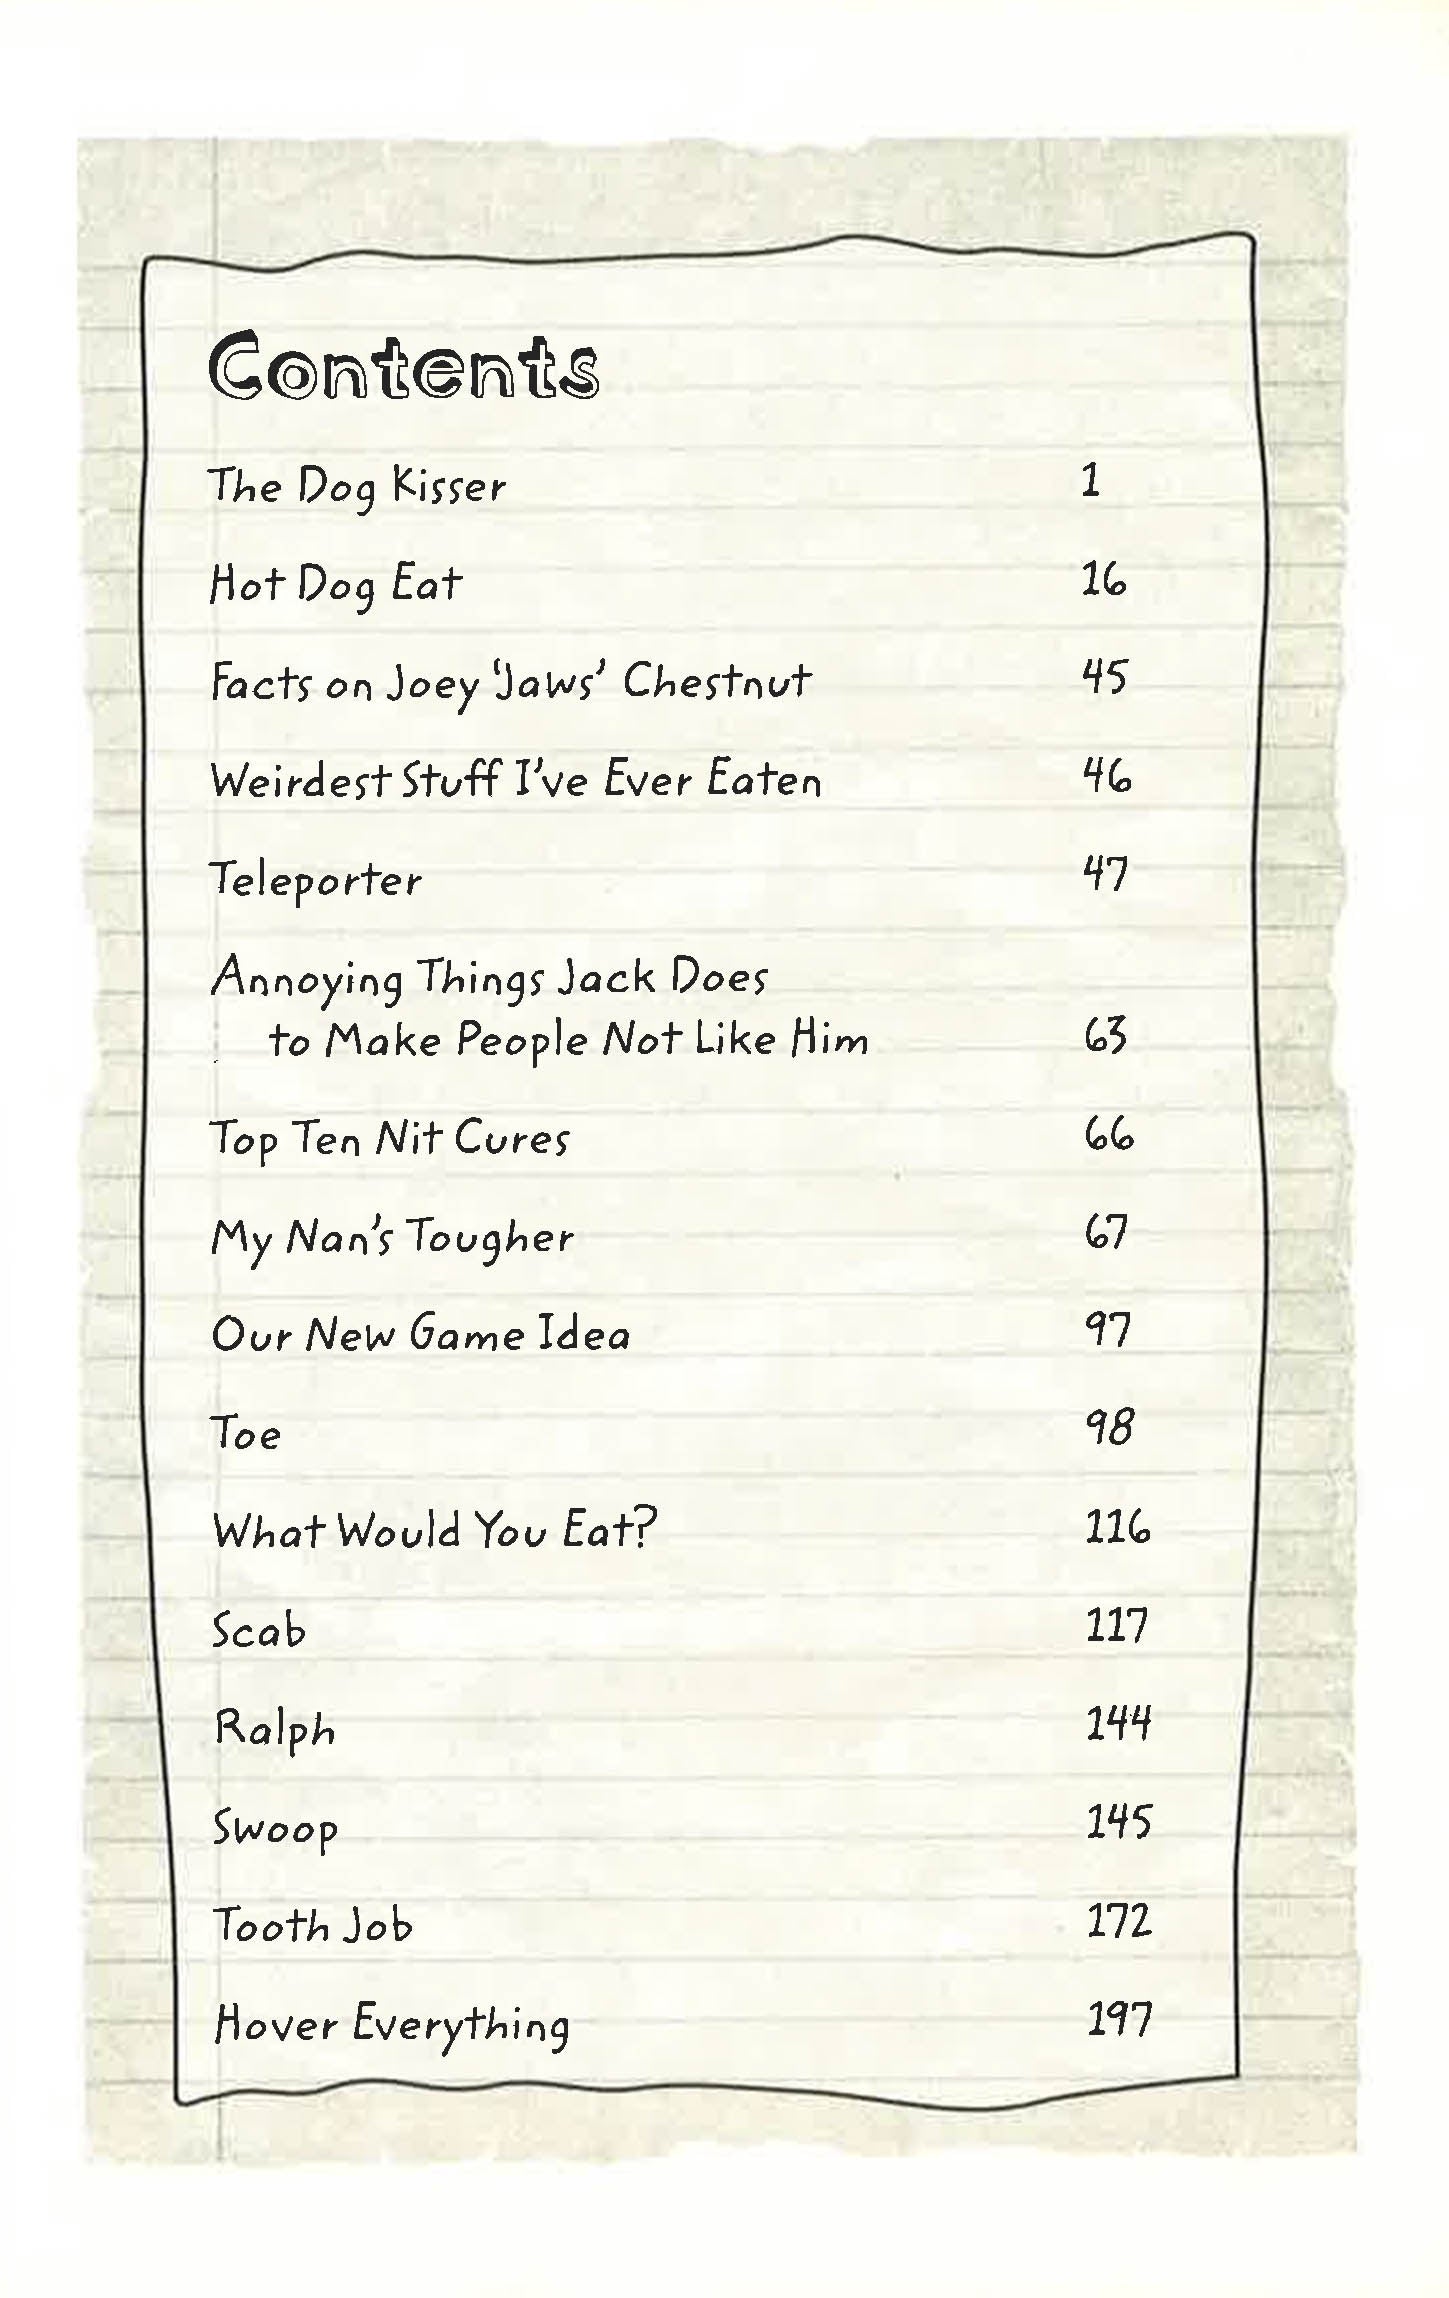 Contents
The Dog Kisser 1
Hot Dog Eat 16
Facts on Joey ‘Jaws’ Chestnut 45
Weirdest Stuff I’ve Ever Eaten 46
Teleporter 47
Annoying Things Jack Does
to Make People Not Like Him 63
Top Ten Nit Cures 66
My Nan’s Tougher 67
Our New Game Idea 97
Toe 98
What Would You Eat? 116
Scab 117
Ralph 144
Swoop 145
Tooth Job 172
Hover Everything 197